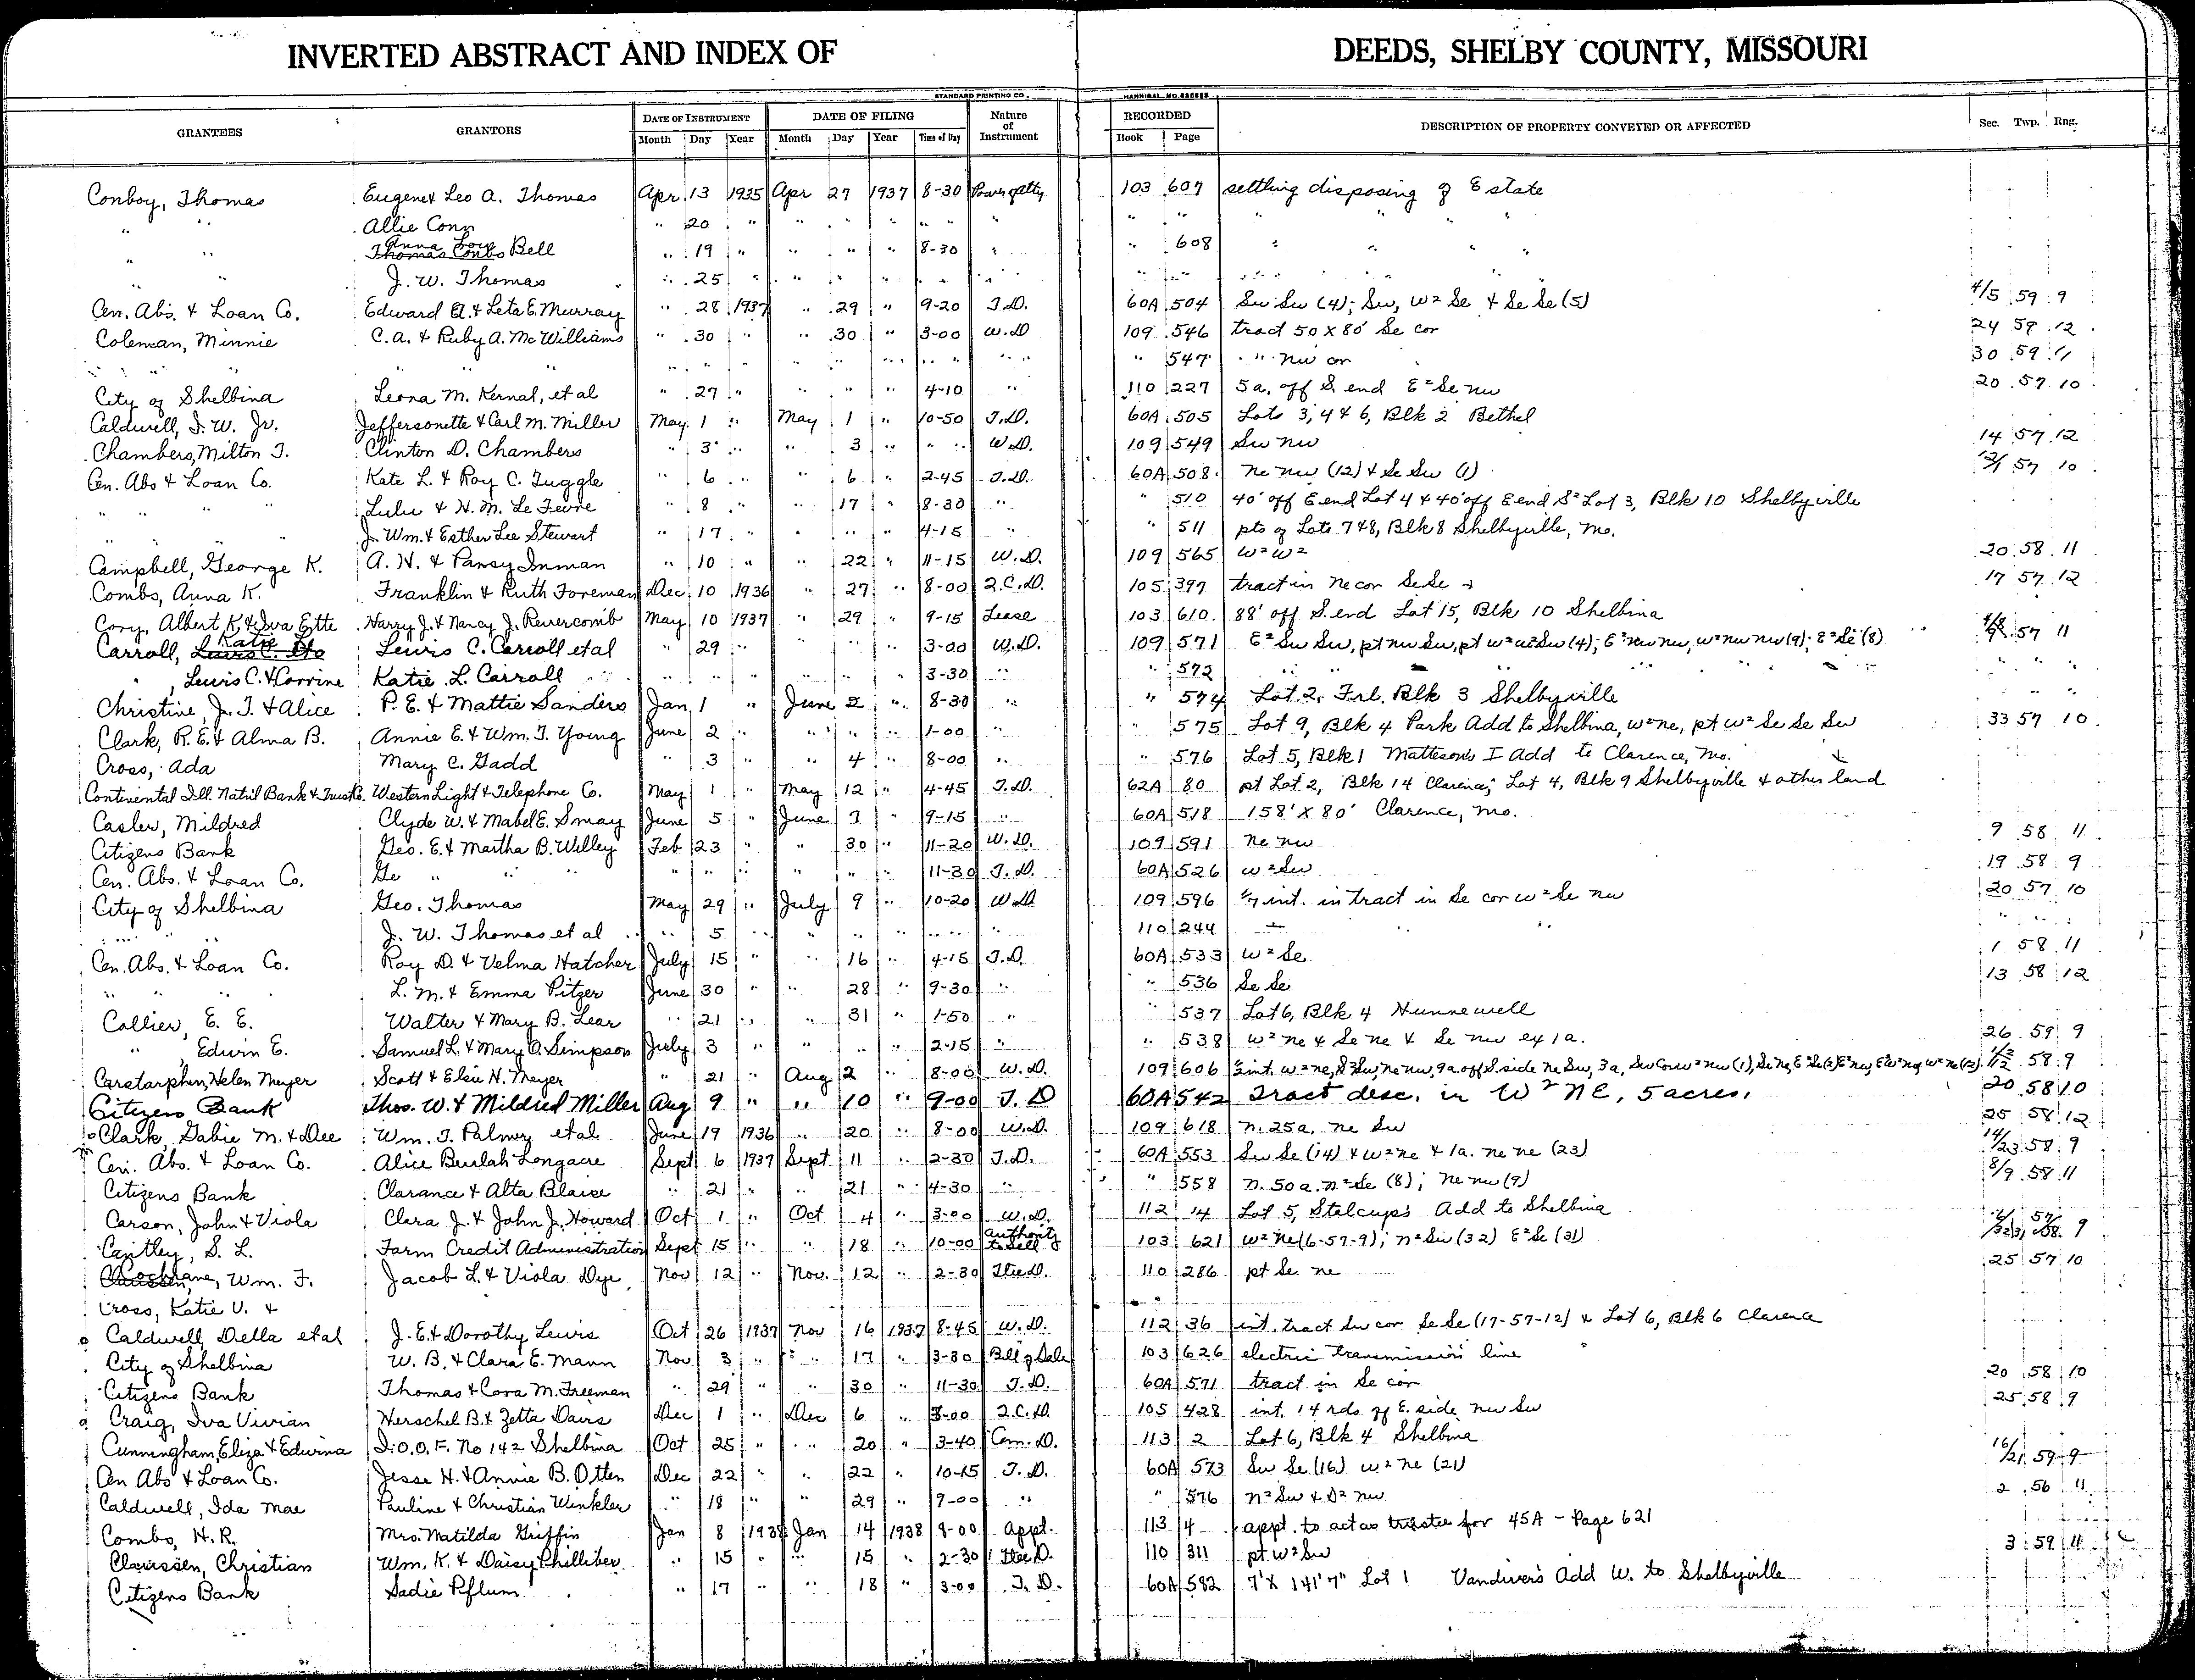 INVERTED ABSTRACT AND INDEX OF DEEDS, SHELBY COUNTY, MISSOURI
STANDARD PRINTING CO. HANNIBAL, MO.
GRANTEES GRANTORS DATE OF INSTRUMENT DATE OF FILING Nature of Instrument RECORDED DESCRIPTION OF PROPERTY CONVEYED OR AFFECTED Sec. Twp. Rng.
Month Day Year Month Day Year Time of Day Book Page
Conboy, Thomas Eugene & Leo A. Thomas Apr 13 1935 Apr 27 1937 8-30 Power of atty 103 607 settling disposing of Estate
" " Allie Conn " 20 " " " " " " " " " " " "
" " Thomas Combs Anna Bell " 19 " " " " 8-30 " " 608 " " " "
" " J. W. Thomas " 25 " " " " " " " " " " " "
Cen. Abs. & Loan Co. Edward A. & Leta E. Murray " 28 1937 " 29 " 9-20 T.D. 60A 504 Sw Sw (4); Sw, W² Se & Se Se (5) 4/5 59 9
Coleman, Minnie C.A. & Ruby A. McWilliams " 30 " " 30 " 3-00 W.D 109 546 tract 50 x 80' Se cor 24 59 12
" " " " " " " " " " " " " 547 " " nw cor 30 59 11
City of Shelbina Leona M. Kernal, et al " 27 " " " " 4-10 " 110 227 5a. off S. end E² Se nw 20 57 10
Caldwell, J. W. Jr. Jeffersonette & Carl M. Miller May 1 " May 1 " 10-50 T.D. 60A 505 Lots 3, 4 & 6, Blk 2 Bethel
Chambers, Milton T. Clinton D. Chambers " 3 " " 3 " " " W.D. 109 549 Sw nw 14 57 12
Cen. Abs & Loan Co. Kate L. & Roy C. Tuggle " 6 " " 6 " 2-45 T.D. 60A 508 ne nw (12) & Se Sw (1) 12/1 57 10
" " " " Lulu & H. M. Le Fevre " 8 " " 17 " 8-30 " " 510 40' off E end Lot 4 & 40' off E end S² Lot 3, Blk 10 Shelbyville
" " " " J. Wm. & Esther Lee Stewart " 17 " " " " 4-15 " " 511 pts of Lots 7 & 8, Blk 8 Shelbyville, Mo.
Campbell, George K. A. H. & Pansy Inman " 10 " " 22 " 11-15 W.D. 109 565 W² W² 20 58 11
Combs, Anna K. Franklin & Ruth Foreman Dec 10 1936 " 27 " 8-00 Q.C.D. 105 397 tract in ne cor Se Se 17 57 12
Cory, Albert K. & Iva Ette Harry J. & Nancy J. Revercomb May 10 1937 " 29 " 9-15 Lease 103 610 88' off S. end Lot 15, Blk 10 Shelbina
Carroll, Katie Lewis C. Carroll et al " 29 " " " " 3-00 W.D. 109 571 E² Sw Sw, pt nw Sw, pt W² W² Sw (4); E² nw nw, W² nw nw (9); E² Se (8) 57 11
" , Lewis C. & Corrine Katie L. Carroll " " " " " " 3-30 " " 572 " " "
Christine, J. T. & Alice P. E. & Mattie Sanders Jan 1 " June 2 " 8-30 " " 574 Lot 2, Frl. Blk 3 Shelbyville " " "
Clark, R. E. & Alma B. Annie E. & Wm. T. Young June 2 " " " " 1-00 " " 575 Lot 9, Blk 4 Park Add to Shelbina, W² ne, pt W² Se Se Sw 33 57 10
Cross, Ada Mary C. Gadd " 3 " " 4 " 8-00 " " 576 Lot 5, Blk 1 Matteson's I Add to Clarence, Mo.
Continental Ill. Nat'nl Bank & Trust Co. Western Light & Telephone Co. May 1 " May 12 " 4-45 T.D. 62A 80 pt Lot 2, Blk 14 Clarence; Lot 4, Blk 9 Shelbyville & other land
Casler, Mildred Clyde W. & Mabel E. Smay June 5 " June 7 " 9-15 " 60A 518 158' x 80' Clarence, Mo.
Citizens Bank Geo. E. & Martha B. Willey Feb 23 " " 30 " 11-20 W.D. 109 591 ne nw 9 58 11
Cen. Abs. & Loan Co. Ge " " " " " " " " " 11-30 T.D. 60A 526 W² Sw 19 58 9
City of Shelbina Geo. Thomas May 29 " July 9 " 10-20 W.D 109 596 1/7 int. in tract in Se cor W² Se nw 20 57 10
" " " J. W. Thomas et al " 5 " " " " " " " 110 244 " " " " "
Cen. Abs. & Loan Co. Roy D. & Velma Hatcher July 15 " " 16 " 4-15 T.D. 60A 533 W² Se 1 58 11
" " " L. M. & Emma Pitzer June 30 " " 28 " 9-30 " " 536 Se Se 13 58 12
Collier, E. E. Walter & Mary B. Lear " 21 " " 31 " 1-50 " " 537 Lot 6, Blk 4 Hunnewell
" , Edwin E. Samuel L. & Mary O. Simpson July 3 " " " " 2-15 " " 538 W² ne & Se ne & Se nw ex 1a. 26 59 9
Carstarphen, Helen Meyer Scott & Elsie H. Meyer " 21 " Aug 2 " 8-00 W.D. 109 606 int. W² ne, S² Sw, ne nw, 9a off S. side ne Sw, 3a, Sw Cor W² nw (1), Se ne, 1/2 58 9
Citizens Bank Thos. W. & Mildred Miller Aug 9 " " 10 " 9-00 T.D 60A 542 Tract desc. in W² NE, 5 acres. 20 58 10
Clark, Gabie M. & Dee Wm. T. Palmer et al June 19 1936 " 20 " 8-00 W.D. 109 618 n. 25a. ne Sw 25 58 12
Cen. Abs. & Loan Co. Alice Beulah Longacre Sept 6 1937 Sept 11 " 2-30 T.D. 60A 553 Sw Se (14) & W² ne & 1a. ne ne (23) 14/23 58 9
Citizens Bank Clarance & Alta Blaise " 21 " " 21 " 4-30 " " 558 n. 50a. n² Se (8); ne nw (9) 8/9 58 11
Carson, John & Viola Clara J. & John J. Howard Oct 1 " Oct 4 " 3-00 W.D. 112 14 Lot 5, Stalcup's Add to Shelbina
Cantley, S. L. Farm Credit Administration Sept 15 " " 18 " 10-00 Authority to Sell 103 621 W² ne (6-57-9); n² Sw (32) E² Se (31) 9
Cochrane, Wm. F. Jacob L. & Viola Dye Nov 12 " Nov. 12 " 2-30 Tte D. 110 286 pt Se ne 25 57 10
Cross, Katie V. &
Caldwell, Della et al J. E. & Dorothy Lewis Oct 26 1937 Nov 16 1937 8-45 W.D. 112 36 int. tract Sw cor Se Se (17-57-12) & Lot 6, Blk 6 Clarence
City of Shelbina W. B. & Clara E. Mann Nov 3 " " 17 " 3-30 Bill of Sale 103 626 electric transmission line
Citizens Bank Thomas & Cora M. Freeman " 29 " " 30 " 11-30 T.D. 60A 571 tract in Se cor 20 58 10
Craig, Iva Vivian Herschel B. & Zetta Davis Dec 1 " Dec 6 " 3-00 Q.C.D. 105 428 int. 14 rds of E. side nw Sw 25 58 9
Cunningham, Eliza & Edwina I.O.O.F. No 142 Shelbina Oct 25 " " 20 " 3-40 Cem. D. 113 2 Lot 6, Blk 4 Shelbina
Cen Abs & Loan Co. Jesse H. & Annie B. Otten Dec 22 " " 22 " 10-15 T.D. 60A 573 Sw Se (16) W² ne (21) 16/21 59 9
Caldwell, Ida Mae Pauline & Christian Winkler " 18 " " 29 " 9-00 " " 576 n² Sw & S² nw 2 56 11
Combs, H. R. Mrs. Matilda Griffin Jan 8 1938 Jan 14 1938 9-00 Appt. 113 4 appt. to act as trustee for 45A - Page 621
Claussen, Christian Wm. K. & Daisy Philliber " 15 " " 15 " 2-30 Tte D. 110 311 pt W² Sw 3 59 11
Citizens Bank Sadie Pflum " 17 " " 18 " 3-00 T.D. 60A 582 7' x 141' 7" Lot 1 Vandiver's Add W. to Shelbyville